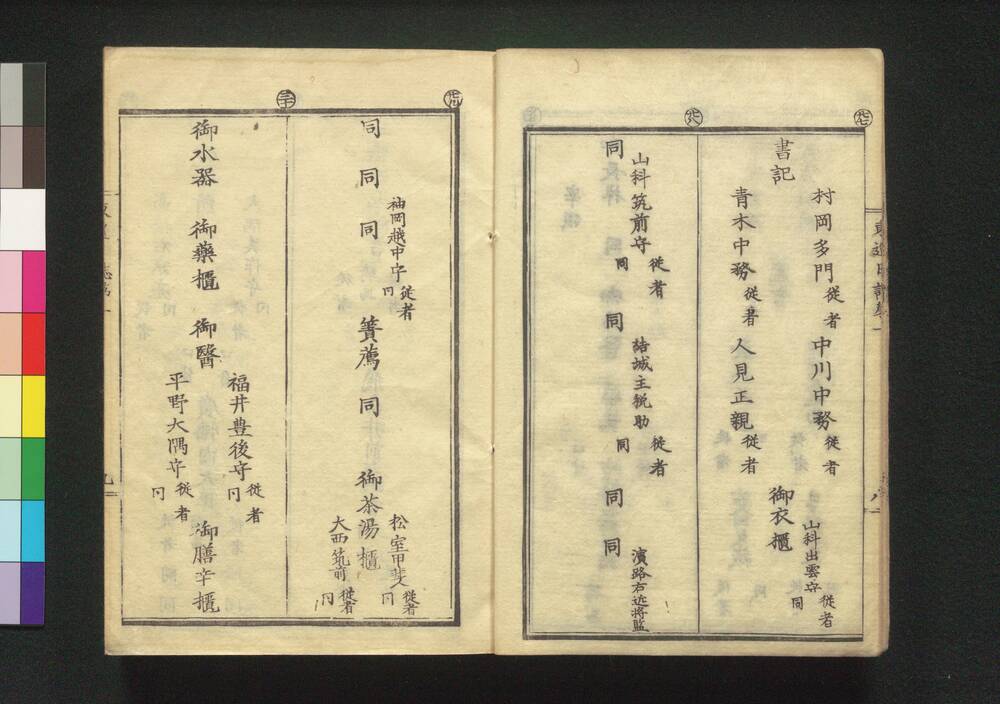 書記
村岡多門 従者 中川中務 従者
青木中務 従者 人見正親 従者
御衣櫃
山科出雲守 従者 同
山科筑前守 従者 同
同
同
結城主税助 従者 同
同
同
濱路右近将監
同 同 同
袖岡越中守 従者 同
簀薦 同 御茶湯櫃
松室甲斐 従者 同
大西筑前 従者 同
御水器 御藥櫃 御醫
福井豊後守 従者 同
平野大隅守 従者 同
御膳辛櫃